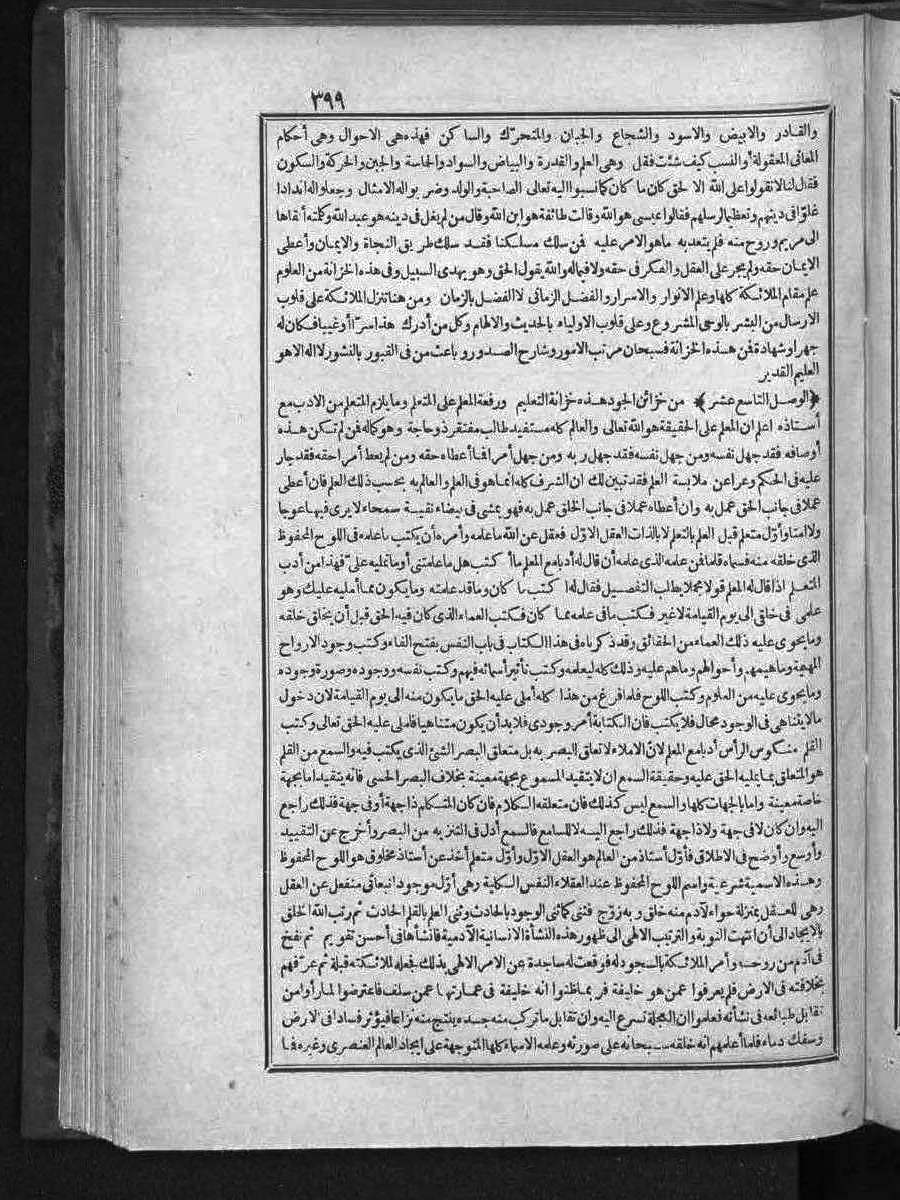 ٣٩٩
والقادر والابيض والاسود والشجاع والجبان والمتحرّك والساكن فهذه هى الاحوال وهى أحكام
المعانى المعقولة أو النسب كيف شئت فقل وهى العلم والقدرة والبياض والسواد والحاسة والجبن والحركة والسكون
فقال لنا لا تقولوا على الله الا الحق كان ما كان كما نسبوا اليه تعالى الصاحبة والولد وضربوا له الامثال وجعلوا له اندادا
غلوّا فى دينهم وتعظيما لرسلهم فقالوا عيسى هو الله وقالت طائفة هو ابن الله وقال من لم يغل فى دينه هو عبد الله وكلمته ألقاها
الى مريم وروح منه فلم يتعد به ما هو الامر عليه فمن سلك مسلكنا فقد سلك طريق النجاة والايمان وأعطى
الايمان حقه ولم يجر على العقل والفكر فى حقه ولا فيما له والله يقول الحق وهو يهدى السبيل وفى هذه الخزانة من العلوم
علم مقام الملائكة كلها وعلم الانوار والاسرار والفضل الزمانى لا الفضل بالزمان ومن هنا تنزل الملائكة على قلوب
الارسال من البشر بالوحى المشروع وعلى قلوب الاولياء بالحديث والالهام وكل من أدرك هذا سرّا أو غيبا فكان له
جهرا وشهادة فمن هذه الخزانة فسبحان مرتب الامور وشارح الصدور وباعث من فى القبور بالنشور لا اله الا هو
العليم القدير
﴿الوصل التاسع عشر﴾ من خزائن الجود هذه خزانة التعليم ورفعة المعلم على المتعلم وما يلزم المتعلم من الادب مع
أستاذه اعلم ان المعلم على الحقيقة هو الله تعالى والعالم كله مستفيد طالب مفتقر ذو حاجة وهو كماله فمن لم تكن هذه
أوصافه فقد جهل نفسه ومن جهل نفسه فقد جهل ربه ومن جهل أمرا فما أعطاه حقه ومن لم يعط أمرا حقه فقد جار
عليه فى الحكم وعرا عن ملابسة العلم فقد تبين لك ان الشرف كله انما هو فى العلم والعالم به بحسب ذلك العلم فان أعطى
عملا فى جانب الحق عمل به وان أعطاه عملا فى جانب الخلق عمل به فهو يمشى فى بيضاء نقية سمحاء لا يرى فيها عوجا
ولا امتا وأوّل متعلم قبل العلم بالتعلم لا بالذات العقل الاوّل فعقل عن الله ما علمه وأمره أن يكتب ما علمه فى اللوح المحفوظ
الذى خلقه منه فسماه قلما فمن علمه الذى علمه أن قال له أدبا مع المعلم ما أكتب هل ما علمتنى أو ما تمليه علىّ فهذا من أدب
المتعلم اذا قال له المعلم قولا مجملا يطلب التفصيل فقال له اكتب ما كان وما قد علمته وما يكون مما أمليه عليك وهو
علمى فى خلقى الى يوم القيامة لا غير فكتب ما فى علمه مما كان فكتب العماء الذى كان فيه الحق قبل أن يخلق خلقه
وما يحوى عليه ذلك العماء من الحقائق وقد ذكرناه فى هذا الكتاب فى باب النفس بفتح الفاء وكتب وجود الارواح
المهيمة وما هيمهم وأحوالهم وما هم عليه وذلك كله ليعلمه وكتب تأثير أسمائه فيهم وكتب نفسه ووجوده وصورة وجوده
وما يحوى عليه من العلوم وكتب اللوح فلما فرغ من هذا كله أملى عليه الحق ما يكون منه الى يوم القيامة لان دخول
ما لا يتناهى فى الوجود محال فلا يكتب فان الكتابة أمر وجودى فلا بد أن يكون متناهيا فاملى عليه الحق تعالى وكتب
القلم منكوس الرأس أدبا مع المعلم لانّ الاملاء لا تعلق للبصر به بل متعلق البصر الشئ الذى يكتب فيه والسمع من القلم
هو المتعلق بما يمليه الحق عليه وحقيقة السمع ان لا يتقيد المسموع بجهة معينة بخلاف البصر الحسى فانه يتقيد اما بجهة
خاصة معينة واما بالجهات كلها والسمع ليس كذلك فان متعلقه الكلام فان كان المتكلم ذا جهة أو فى جهة فذلك راجع
اليه وان كان لا فى جهة ولا ذا جهة فذلك راجع اليه لا للسامع فالسمع أدل فى التنزيه من البصر وأخرج عن التقييد
وأوسع وأوضح فى الاطلاق فأوّل أستاذ من العالم هو العقل الاوّل وأوّل متعلم أخذ عن أستاذ مخلوق هو اللوح المحفوظ
وهذه الاسمية شرعية واسم اللوح المحفوظ عند العقلاء النفس الكلية وهى أوّل موجود انبعاثى منفعل عن العقل
وهى للعقل بمنزلة حواء لآدم منه خلق وبه زوّج فثنى كما ثنى الوجود بالحادث وثنى العلم بالقلم الحادث ثم رتب الله الخلق
بالايجاد الى أن انتهت النوبة والترتيب الالهى الى ظهور هذه النشأة الانسانية الآدمية فانشأها فى أحسن تقويم ثم نفخ
فى آدم من روحه وأمر الملائكة بالسجود له فوقعت له ساجدة عن الامر الالهى بذلك فجعله لملائكته قبلة ثم عرّفهم
بخلافته فى الارض فلم يعرفوا عمن هو خليفة فربما ظنوا انه خليفة فى عمارتها عمن سلف فاعترضوا لما رأوا من
تقابل طبائعه فى نشأته فعلموا ان العجلة تسرع اليه وان تقابل ما تركب منه جسده ينتج منه نزاعا فيؤثر فسادا فى الارض
وسفك دماء فلما أعلمهم انه خلقه سبحانه على صورته وعلمه الاسماء كلها المتوجهة على ايجاد العالم العنصرى وغيره فما